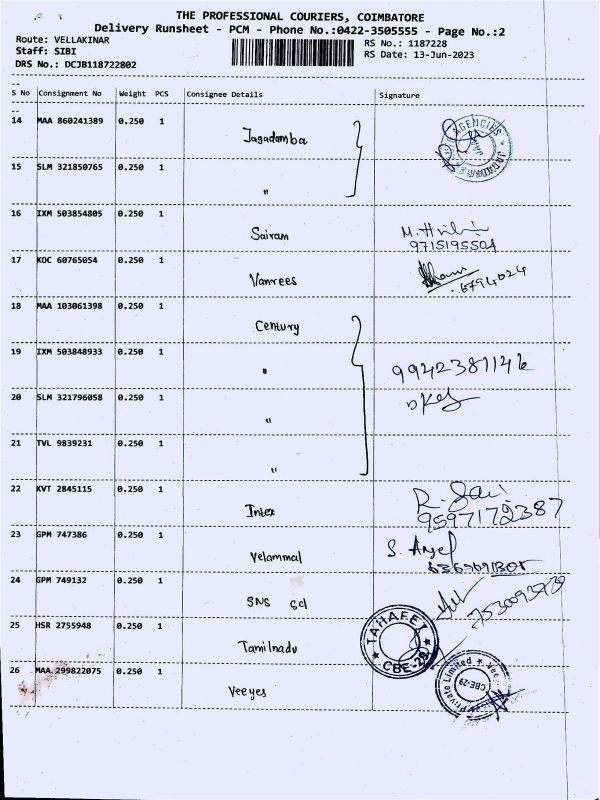 THE PROFESSIONAL COURIERS, COIMBATORE
Delivery Runsheet - PCM - Phone No.:0422-3505555 - Page No.:2
Route: VELLAKINAR RS No.: 1187228
Staff: SIBI RS Date: 13-Jun-2023
DRS No.: DCJB118722802
S No Consignment No Weight PCS Consignee Details Signature
14 MAA 860241389 0.250 1
Jagadamba
AGENCIES
15 SLM 321850765 0.250 1
"
16 IXM 503854805 0.250 1
Sairam M.
9715195504
17 KOC 60765054 0.250 1
Vanrees 6794024
18 MAA 103061398 0.250 1
Century
19 IXM 503848933 0.250 1
" 9942381146
20 SLM 321796058 0.250 1
"
21 TVL 9839231 0.250 1
"
22 KVT 2845115 0.250 1
Intex R. Jai
9597172387
23 GPM 747386 0.250 1
Velammal S.
24 GPM 749132 0.250 1
SNS 7530093730
25 HSR 2755948 0.250 1
Tamilnadu
TAHAFET
CBE-29
26 MAA 299822075 0.250 1
Veeyes
Private Limited
CBE-29